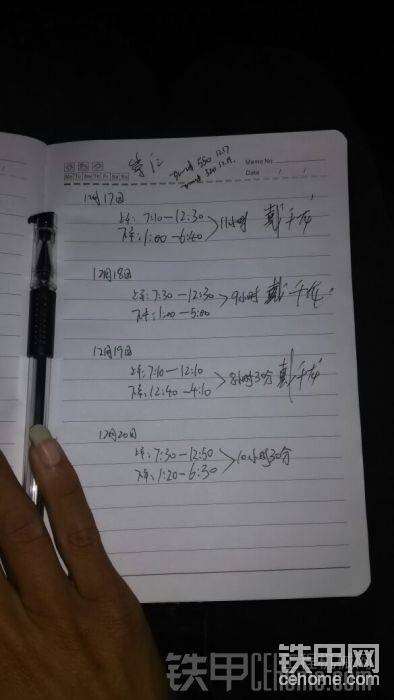 Memo No.
Mo Tu We Th Fr Sa Su
Date / /
12月17日
上午: 7:10—12:30
11小时
下午: 1:00—6:40
12月18日
上午: 7:30—12:30
9小时
下午: 1:00—5:00
12月19日
上午: 7:10—12:10
8小时30分
下午: 12:40—4:10
12月20日
上午: 7:30—12:50
10小时30分
下午: 1:20—6:30
铁甲网
cehome.com
铁甲